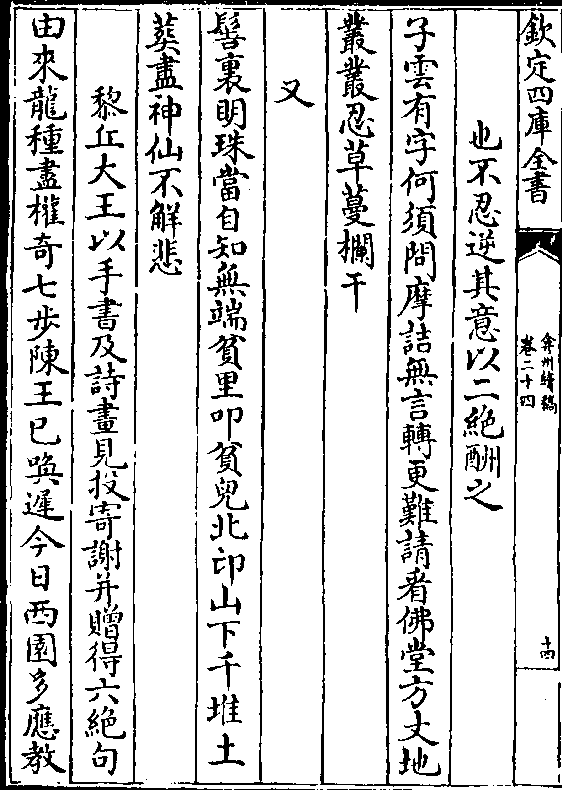 欽定四庫全書
弇州續稿
卷二十四
十四
也不忍逆其意以二絶酬之
子雲有字何須問摩詰無言轉更難請看佛堂方丈地
叢叢忍草蔓欄干
又
髻裏明珠當自知無端貧里叩貧兒北邙山下千堆土
葬盡神仙不解悲
黎丘大王以手書及詩畫見投寄謝并贈得六絶句
由來龍種盡權奇七步陳王已喚遲今日西園多應教